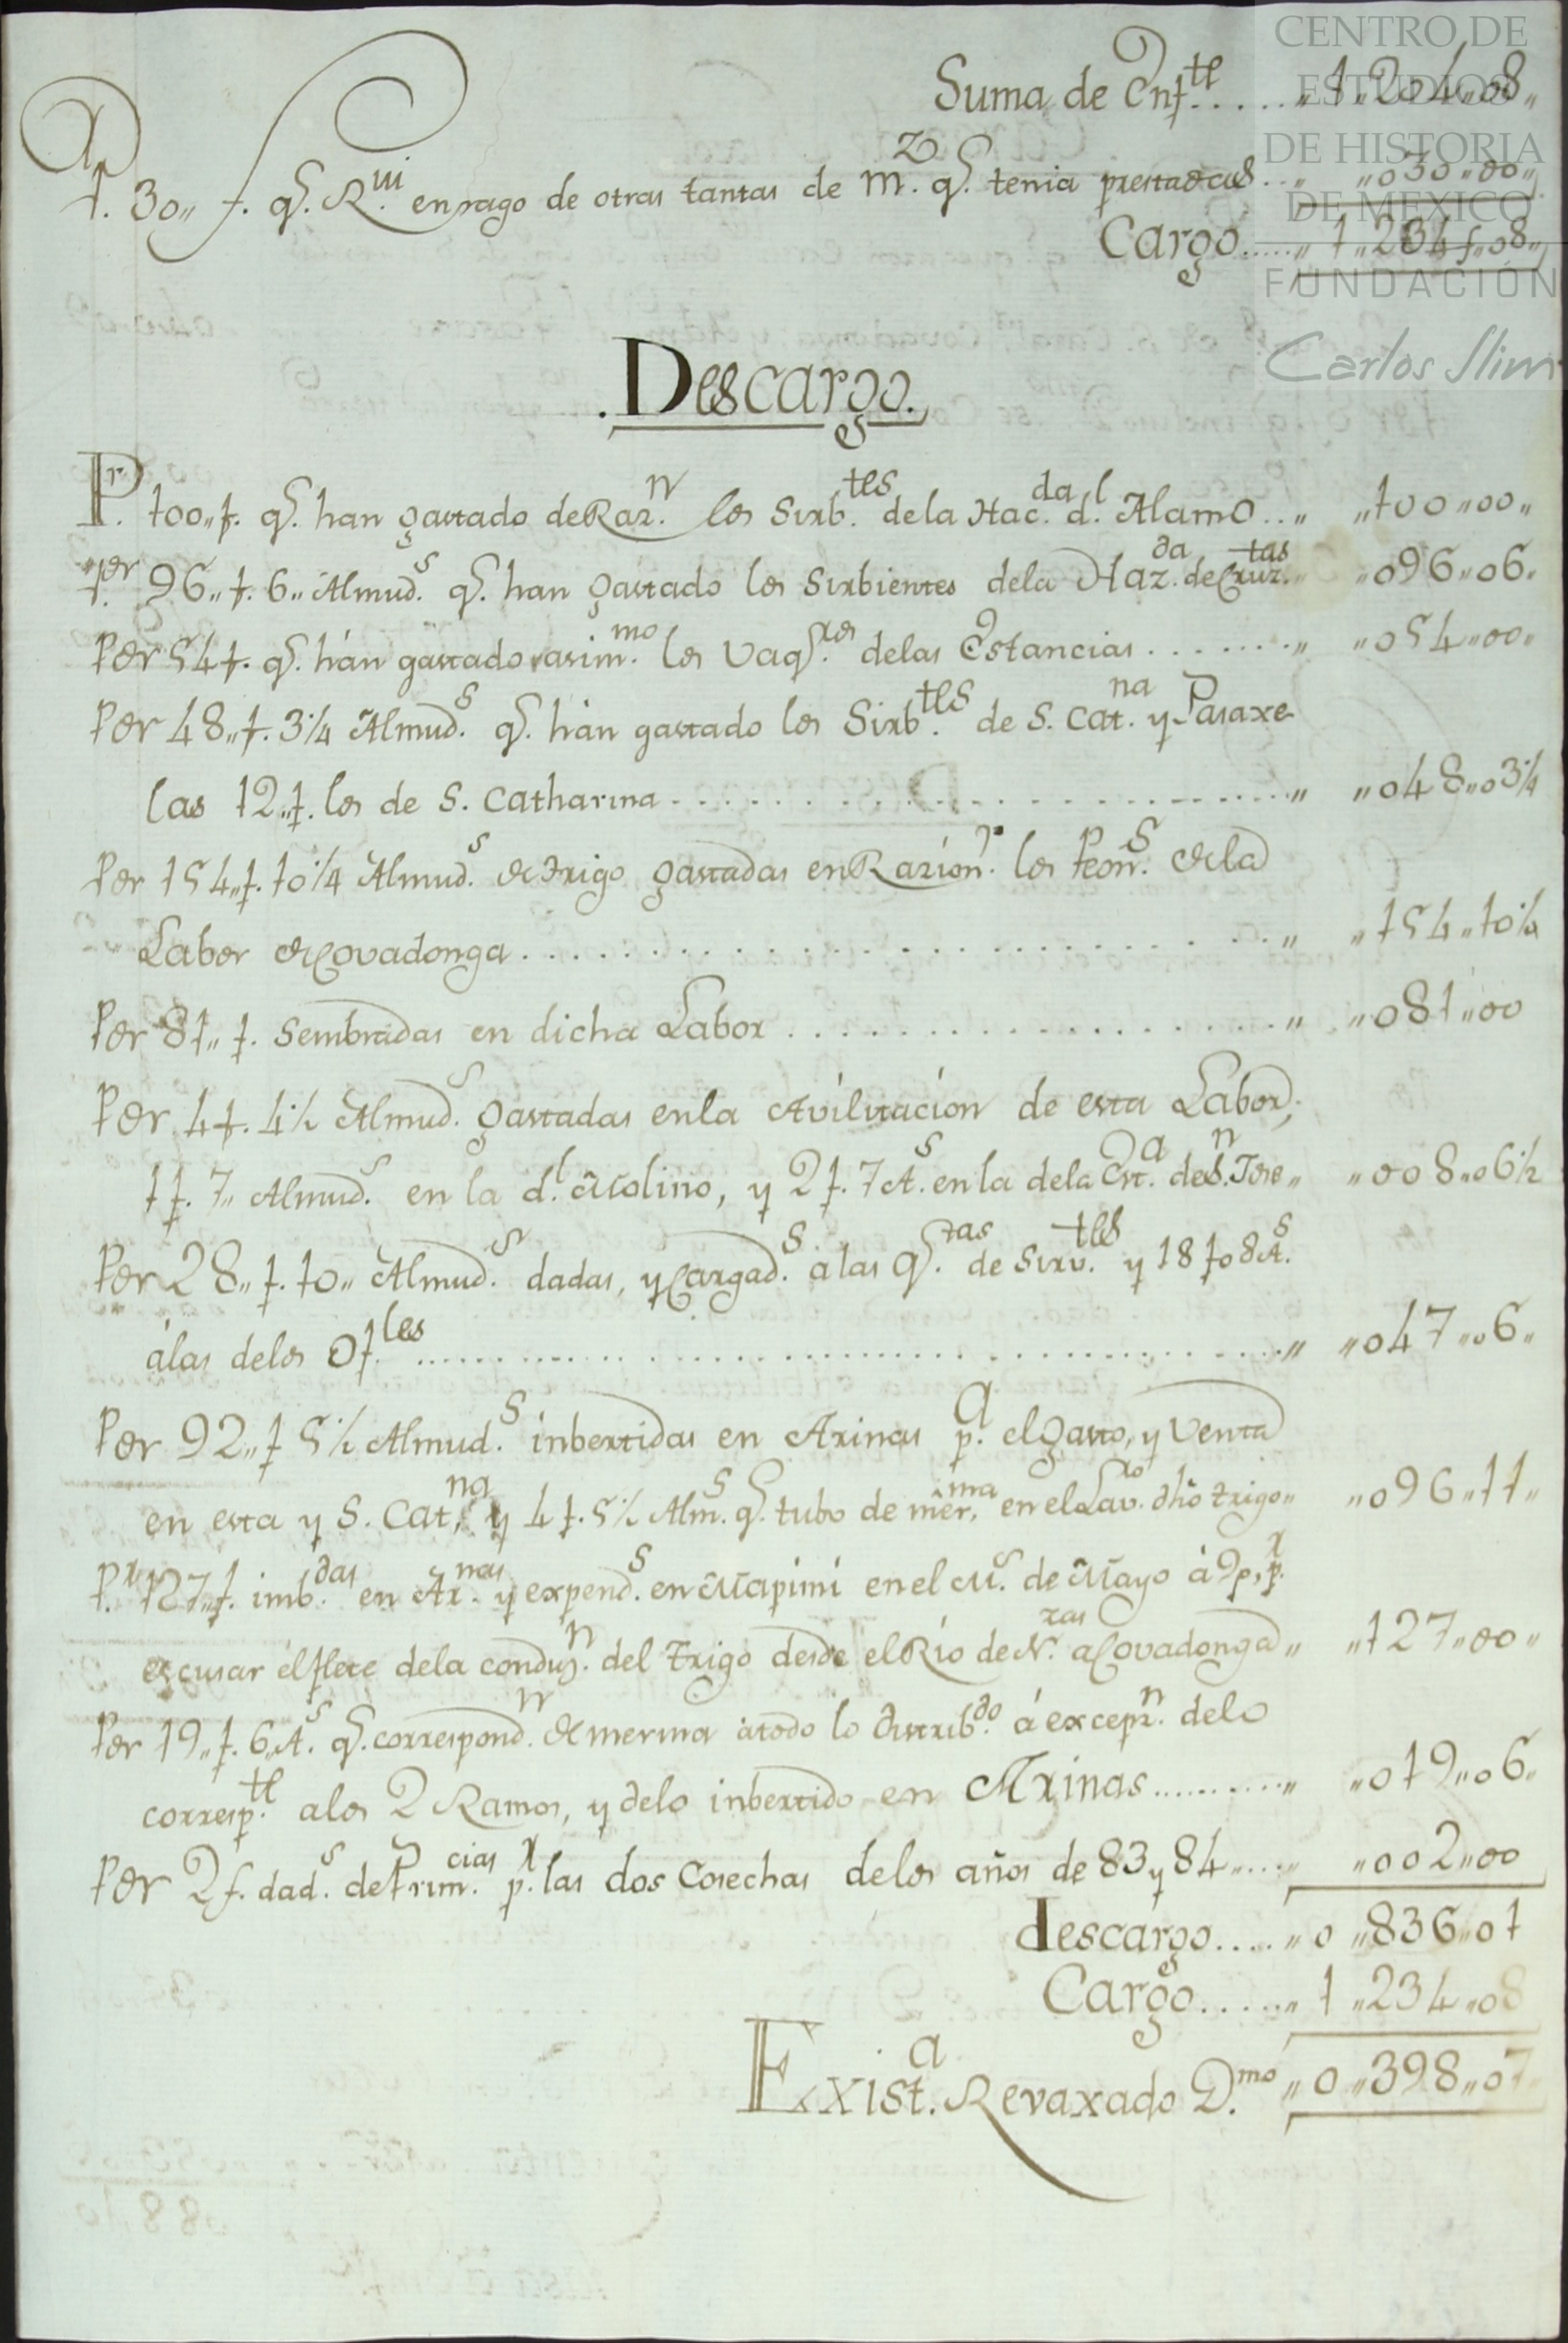 CENTRO DE
ESTUDIOS
DE HISTORIA
DE MEXICO
FUNDACIÓN
Carlos Slim
Suma de Enf.te ..... „ 1„204„08„
P. 30„ f. q.e R.vi en pago de otras tantas de m.z q.e tenia prestadas... „ „030„00„
Cargo..... „ 1„234f„08„
.Descargo.
P.r 100„ f. q.e han gastado de Raz.n los Sirb.tes de la Hac.da d.l Alamo.. „ „100„00„
Por 96„ f. 6„ Almud.s q.e han gastado los Sirbientes dela Haz.da de Cruz.tas „ „096„06„
Por 54 f. q.e hán gastado asim.mo los Vaq.ros delas Estancias ....... „ „054„00„
Por 48„ f. 3 1/4 Almud.s q.e hán gastado los Sirb.tes de S. Cat.na y Pasaxe
las 12„ f. los de S. Catharina ........ „ „048„03 1/4
Por 154„ f. 10 1/4 Almud.s de Trigo gastadas en Razion.s los Peon.s de la
Labor de Covadonga ........ „ „154„10 1/4
Por 81„ f. Sembradas en dicha Labor ........ „ „081„00
Por 4 f. 4 1/2 Almud.s gastadas enla Avilitacion de esta Labor,
1 f. 7„ Almud.s en la d.l Molino, y 2 f. 7 A.s en la dela Est.a de S.n Jose „ „008„06 1/2
Por 28„ f. 10„ Almud.s dadas, y Cargad.s a las q.tas de Sirv.tes y 18 f 08 A.s
álas delos Of.les ........ „ „047„06„
Por 92„ f 5 1/2 Almud.s inbertidas en Arinas p.a el gasto, y Venta
en esta y S. Cat.na y 4 f. 5 1/2 Alm.s q.e tubo de mer.ma en el Lav.do dho trigo „ „096„11„
P.r 127„ f. imb.das en Ar.nas y expend.s en Mapimi en el M.s de Mayo á 9 p.s p.r
escusar el flete dela conduz.n del Trigo desde el Rio de N.zas a Covadonga „ „127„00„
Por 19„ f. 6„ A.s q.e correspond.n de merma á todo lo distrib.do á excepz.n delo
corresp.te alos 2 Ramos, y delo inbertido en Arinas .......... „ „019„06„
Por 2 f. dad.s de Prim.cias p.r las dos Cosechas delos años de 83 y 84 „.... „ „002„00
descargo..... „ 0 „836„01
Cargo..... „ 1 „234„08
Exist.a Revaxado D.mo „ 0 „398„07